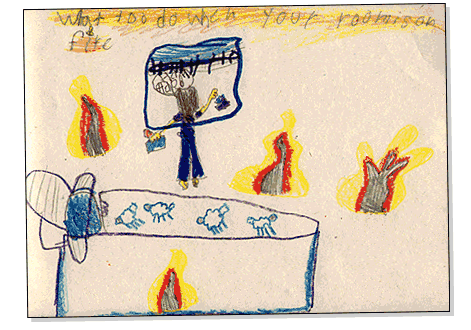 What too do wich your room is on
fire